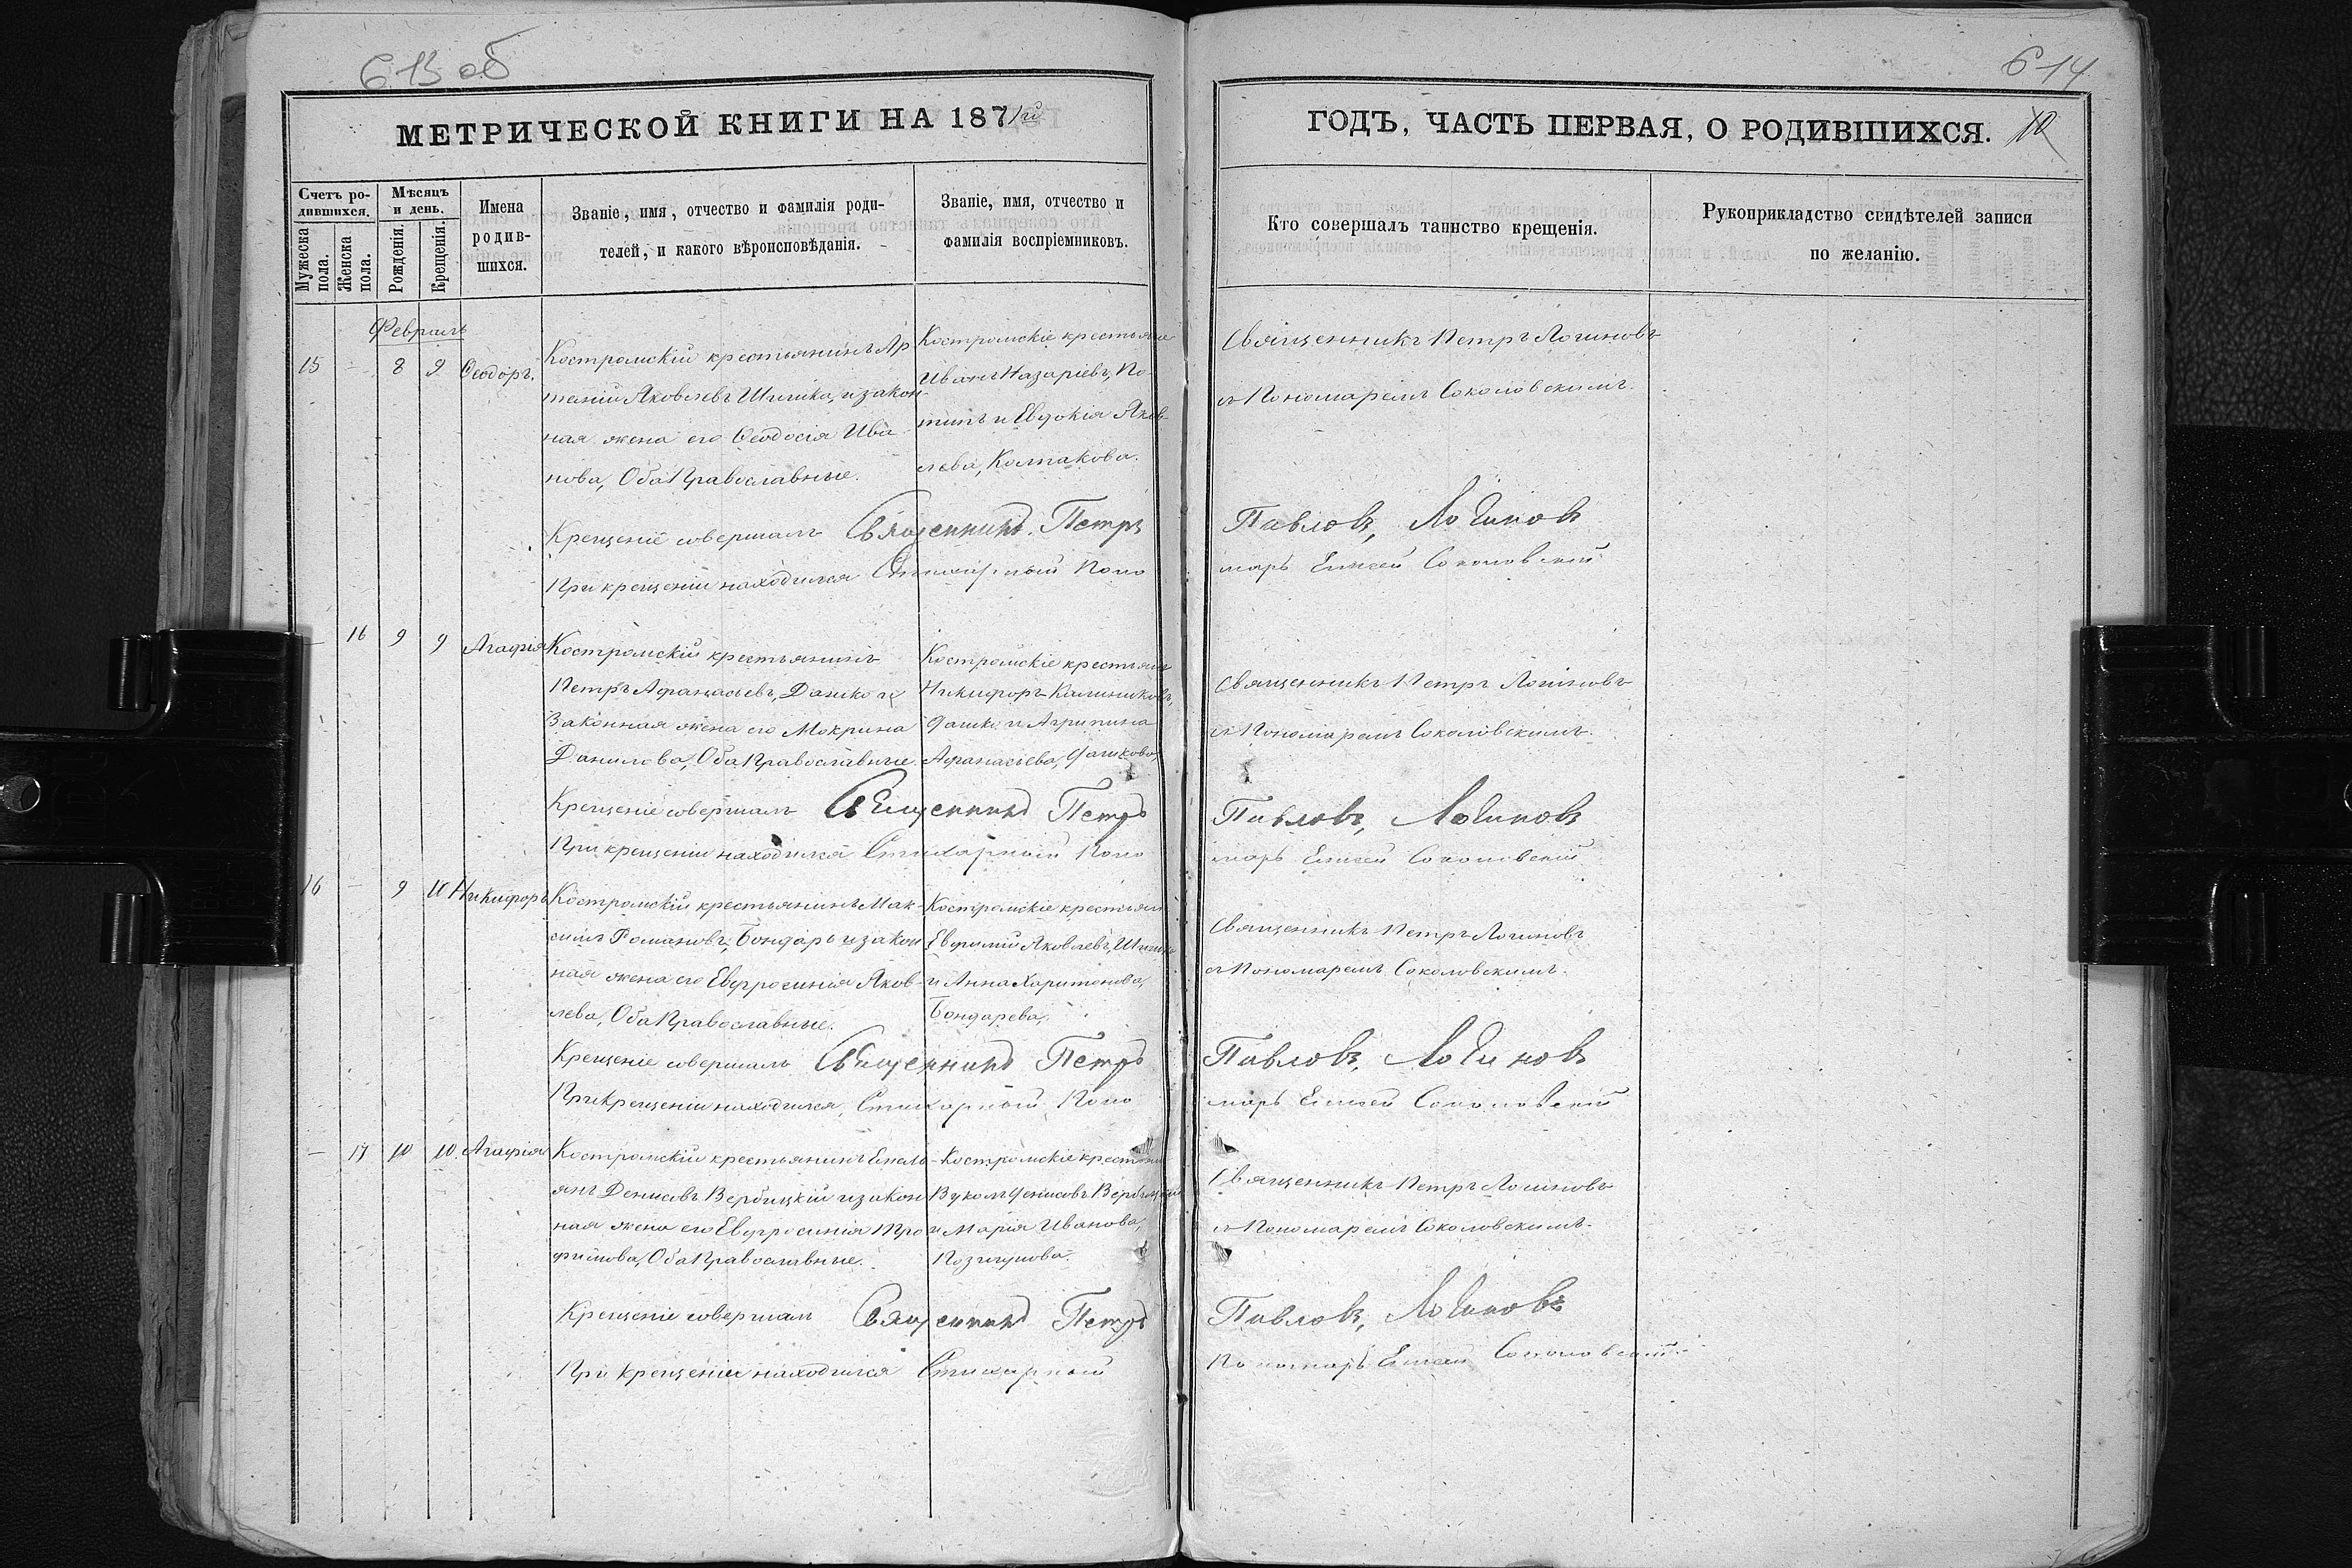 613 об
614
МЕТРИЧЕСКОЙ КНИГИ НА 1871й
ГОДЪ, ЧАСТЬ ПЕРВАЯ, О РОДИВШИХСЯ. 10
Счетъ ро-
дившихся.
Мужеска пола.
Женска пола.
Мѣсяцъ
и день.
Рожденія.
Крещенія.
Имена
родив-
шихся.
Званіе, имя, отчество и фамилія роди-
телей, и какого вѣроисповѣданія.
Званіе, имя, отчество и
фамилія воспріемниковъ.
Кто совершалъ таинство крещенія.
Рукоприкладство свидѣтелей записи
по желанію.
Февраль
15 - 8 9 Ѳеодоръ.
Костромскій крестьянинъ Ар
темій Яковлевъ Шишка, и закон-
ная жена его Ѳеодосія Ива
нова, Оба Православные.
Костромскіе крестьяне
Иванъ Назаріевъ,
и Евдокія Яков-
лева, Колпакова.
Священникъ Петръ Логиновъ
съ Пономаремъ Соколовскимъ.
Крещеніе совершалъ Священникъ Петръ Павловъ, Логиновъ
При крещеніи находился Стихарный Поно марь Елисей Соколовскій
- 16 9 9 Агафія
Костромскій крестьянинъ
Петръ Афанасьевъ, Дашко и
Законная жена его Мокрина
Данилова, Оба Православные.
Костромскіе крестьяне
Никифоръ Калиниковъ,
Дашко и Агрипина
Афанасьева, Дашкова,
Священникъ Петръ Логиновъ
съ Пономаремъ Соколовскимъ.
Крещеніе совершалъ Священникъ Петръ Павловъ, Логиновъ
При крещеніи находился Стихарный Поно марь Елисей Соколовскій
16 - 9 10 Никифоръ
Костромскій крестьянинъ Мак-
симъ Романовъ, Бондарь и закон
ная жена его Евфросинія Яков-
лева, Оба Православные.
Костромскіе крестьяне
Евфимій Яковлевъ, Шишка
и Анна Харитонова,
Бондарева,
Священникъ Петръ Логиновъ
съ Пономаремъ Соколовскимъ.
Крещеніе совершалъ Священникъ Петръ Павловъ, Логиновъ
При крещеніи находился, Стихарный Поно марь Елисей Соколовскій
- 17 10 10 Агафія
Костромскій крестьянинъ Емель-
янъ Денисовъ Вербицкій и закон
ная жена его Евфросинія Тро
фимова, Оба Православные.
Костромскіе крестьяне
Вуколъ Денисовъ Вербицкій
и Марія Иванова,
Священникъ Петръ Логиновъ
съ Пономаремъ Соколовскимъ.
Крещеніе совершалъ Священникъ Петръ Павловъ, Логиновъ
При крещеніи находился Стихарный Пономарь Елисей Соколовскій